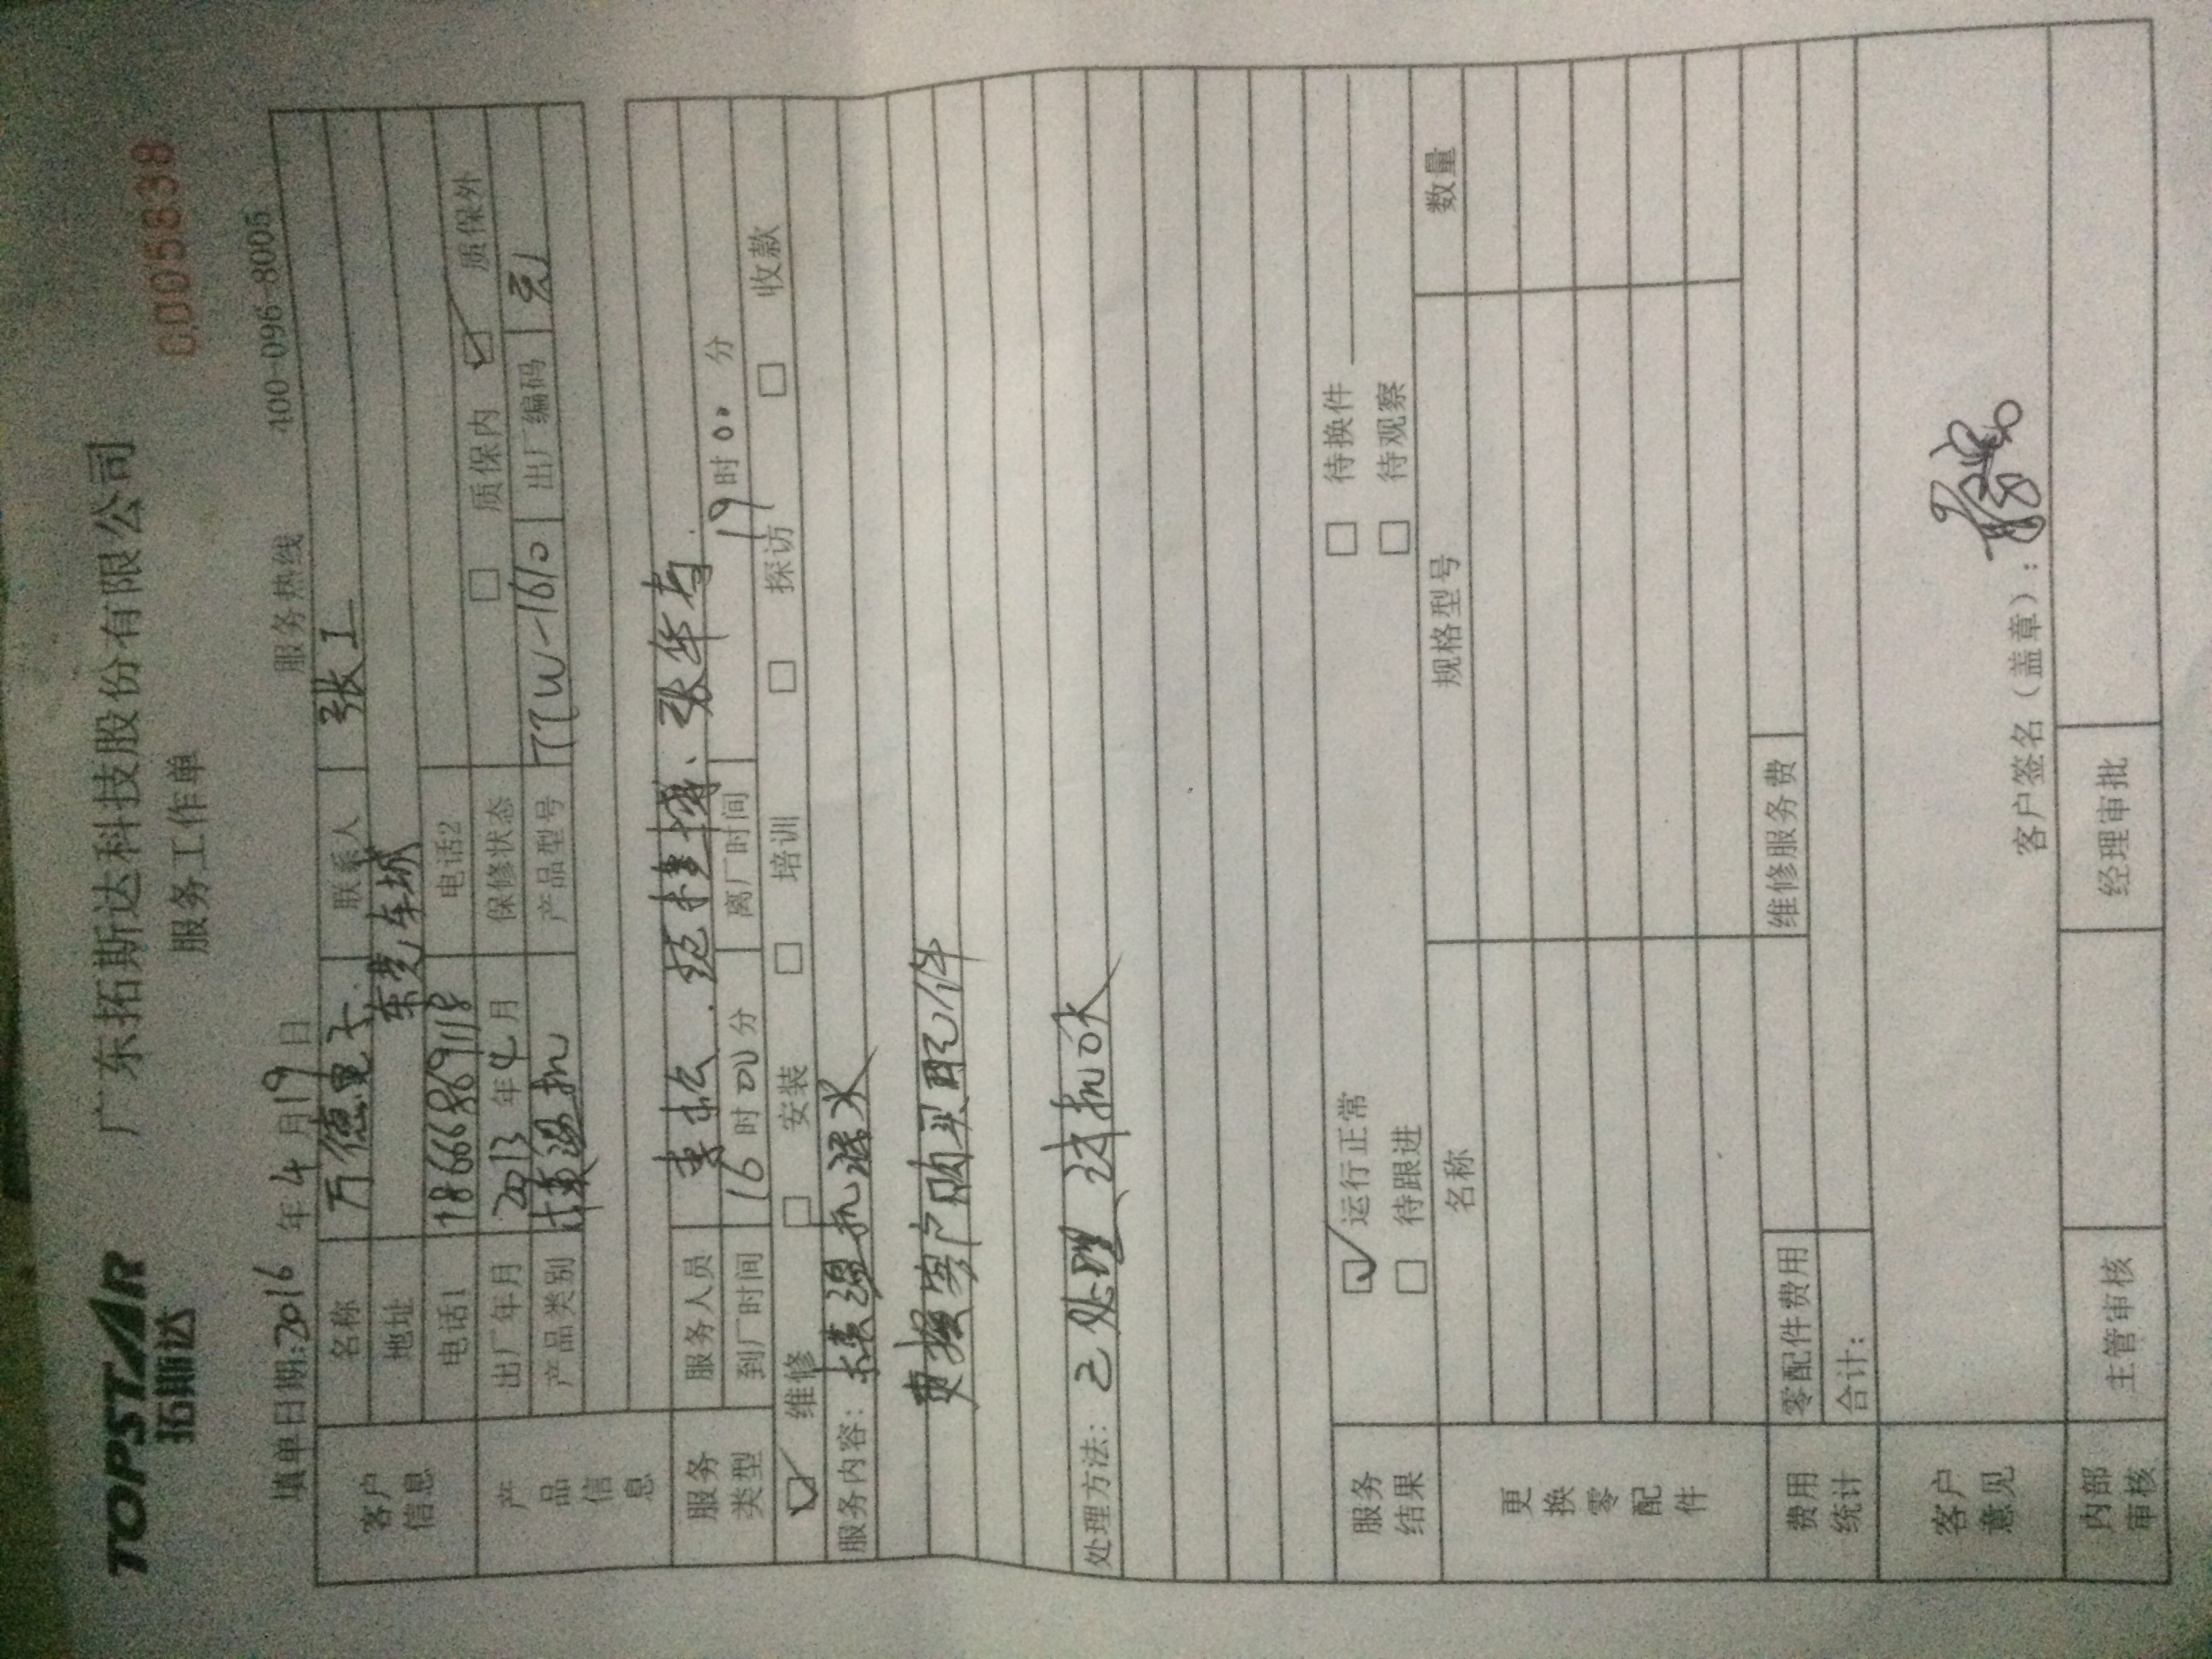 TOPSTAR
拓斯达
广东拓斯达科技股份有限公司
服务工作单
0005838
填单日期:2016年4月19日
服务热线 400-096-8005
客户信息
名称 万德电子 联系人 张工
地址 东莞车城
电话1 18666869118 电话2
产品信息
出厂年月 2013年4月 保修状态 □ 质保内 ☑ 质保外
产品类别 模温机 产品型号 TTW-1610 出厂编码 无
服务类型
服务人员 李松、范 、张华
到厂时间 16时00分 离厂时间 19时00分
☑ 维修 □ 安装 □ 培训 □ 探访 □ 收款
服务内容: 模温机漏水
更换客户购买配件
处理方法: 已处理、
服务结果
☑ 运行正常 □ 待换件
□ 待跟进 □ 待观察
更换零配件
名称 规格型号 数量
费用统计
零配件费用 维修服务费
合计:
客户意见
客户签名(盖章):
内部审核
主管审核 经理审批